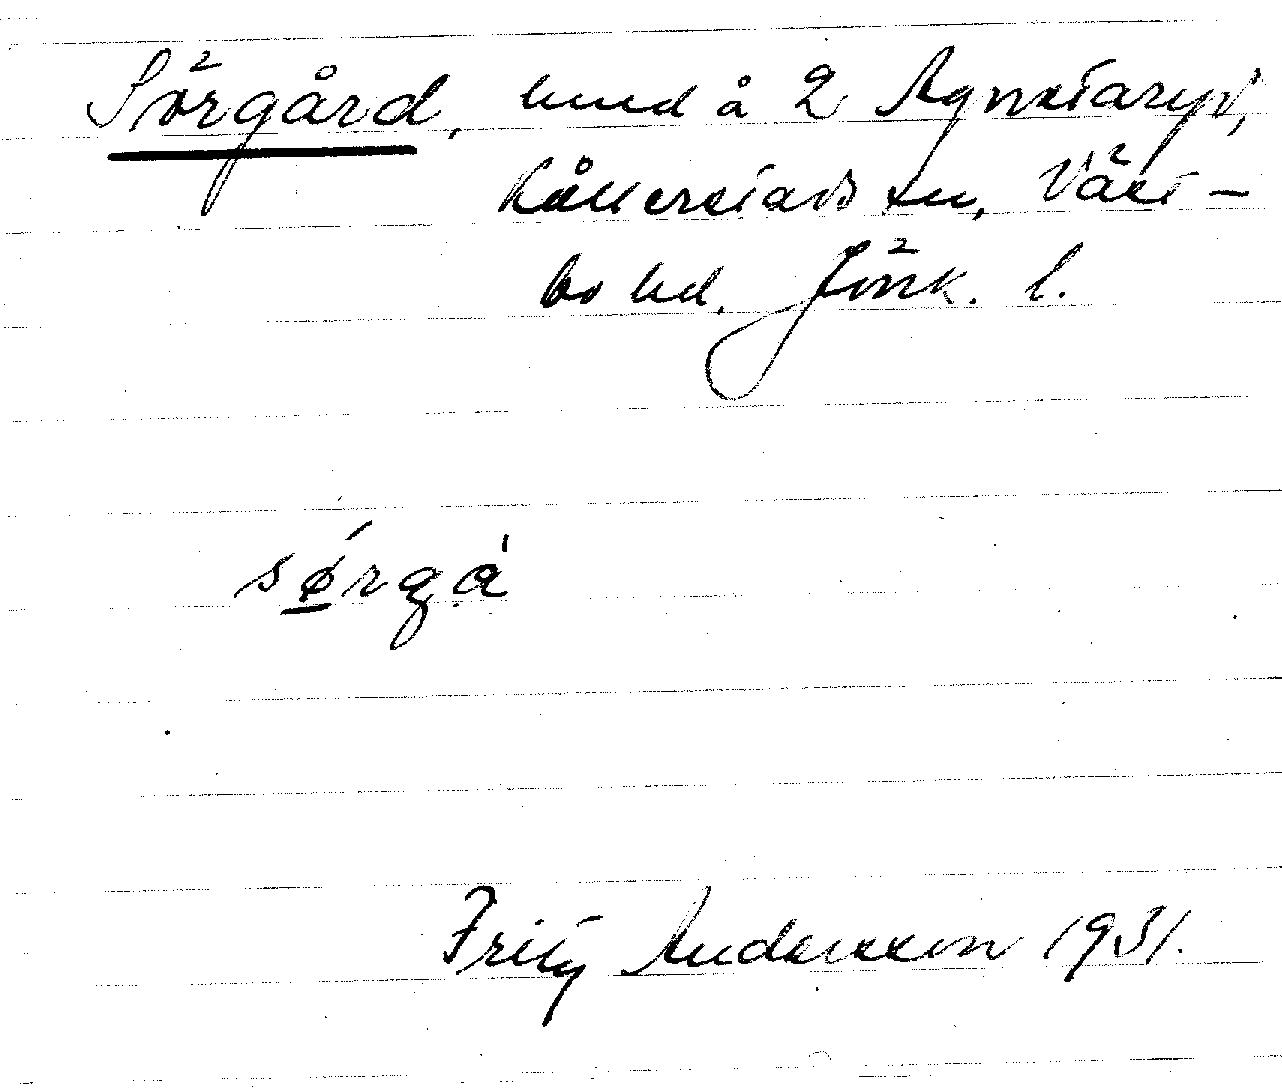 Sörgård, hmd å 2 Agnetaryd,
Kållerstads sn, Väst-
bo hd. Jönk. l.
sǿrgá
Fritz Andersson 1931.